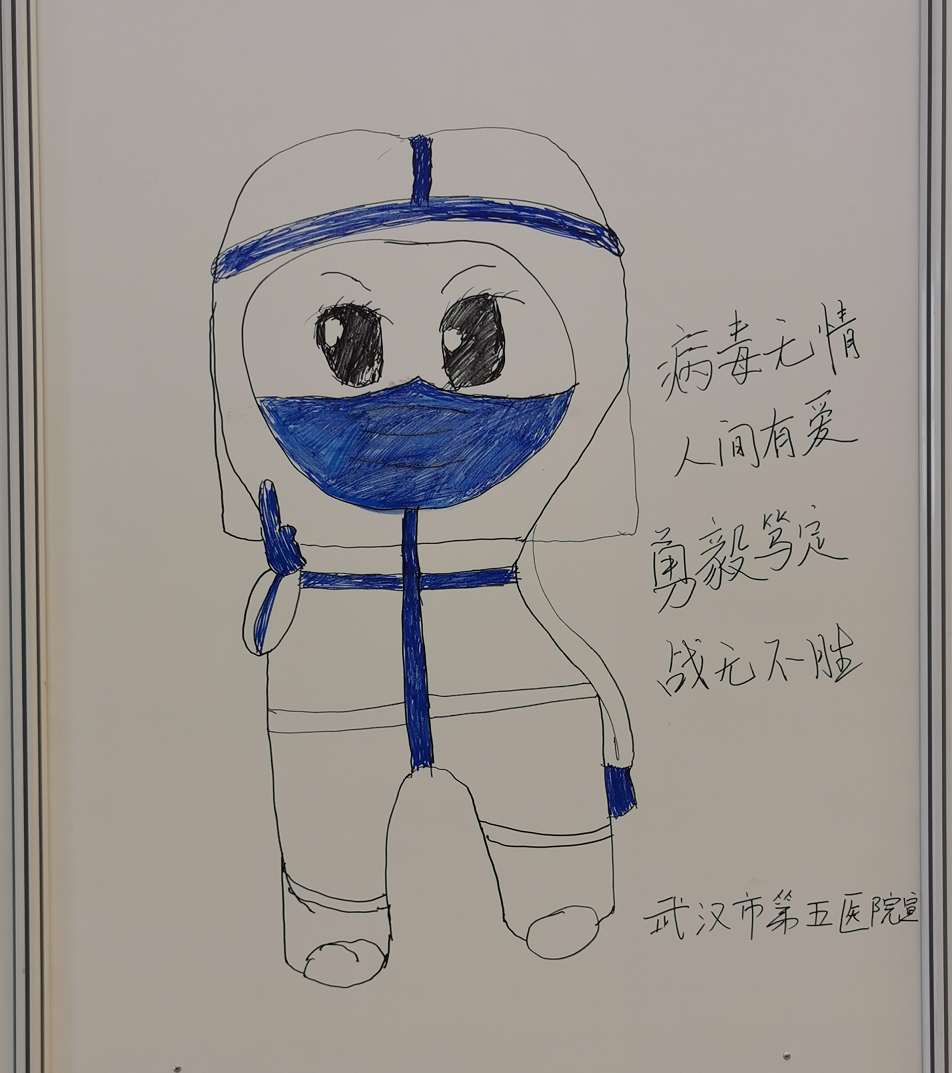 病毒无情
人间有爱
勇毅笃定
战无不胜
武汉市第五医院宣